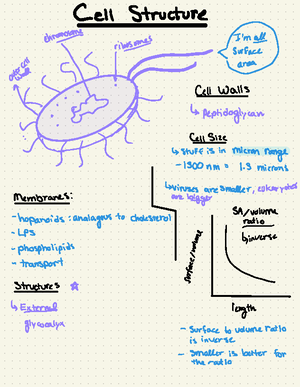 Cell Structure
chromosome
ribosomes
outer cell wall
I'm all
surface
area
Cell Walls
↳ Peptidoglycan
Cell Size
↳ stuff is in micron range
- 1300 nm = 1.3 microns
↳ viruses are smaller, eukaryotes
are bigger
Membranes:
- hopanoids: analagus to cholesterol
- LPS
- phospholipids
- transport
Structures
↳ External
glycocalyx
SA/volume
ratio
↳ inverse
surface/volume
length
- Surface to volume ratio
is inverse
- Smaller is better for
the ratio